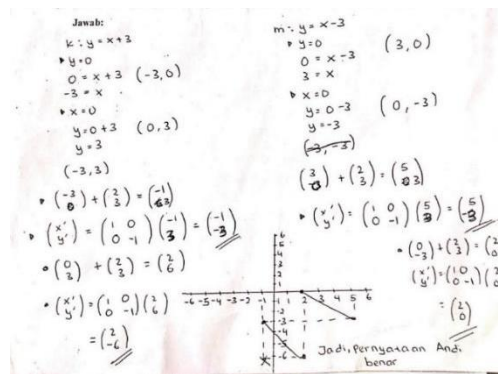 Jawab:
k : y = x+3
y=0
0 = x+3 (-3,0)
-3 = x
x=0
y=0+3 (0,3)
y=3
(-3,3)
(-3 0) + (2 3) = (-1 3)
(x' y') = (1 0 0 -1) (-1 3) = (-1 -3)
(0 3) + (2 3) = (2 6)
(x' y') = (1 0 0 -1) (2 6)
= (2 -6)
m : y = x-3
y=0 (3,0)
0 = x-3
3 = x
x=0
y= 0-3 (0,-3)
y=-3
(3,-3)
(3 0) + (2 3) = (5 3)
(x' y') = (1 0 0 -1) (5 3) = (5 -3)
(0 -3) + (2 3) = (2 0
(x' y') = (1 0 0 -1) (2
= (2 0)
6
5
4
3
2
1
-6 -5 -4 -3 -2 -1 2 3 4 5 6
-3
-4
-5
-6
Jadi, Pernyataan Andi
benar